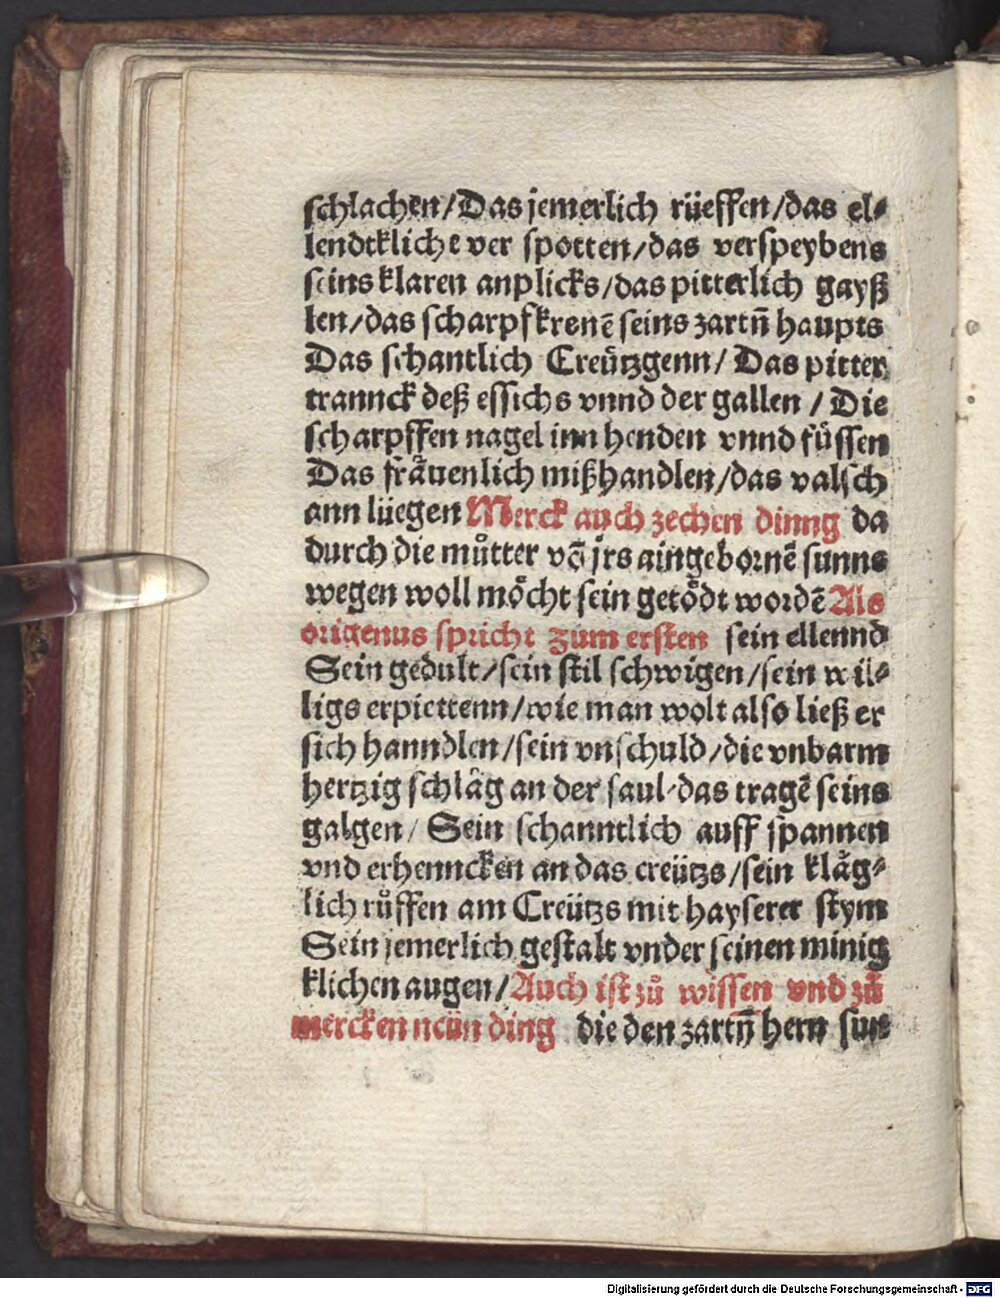 schlachen/Das jemerlich rüeffen/das el⸗
lendtkliche ver spotten/das verspeybens
seins klaren anplicks/das pitterlich gayß
len/das scharpf krenē seins zartn̄ haupts
Das schantlich Creützgenn/ Das pitter
trannck deß essichs vnnd der gallen / Die
scharpffen nagel inn henden vnnd füssen
Das fräuenlich mißhandlen/das valsch
ann lüegen Merck auch zechen dinng da
durch die můtter vō jrs aingebornē sunns
wegen woll möcht sein getödt wordē Als
origenus spricht zum ersten sein ellennd
Sein gedult/sein stil schwigen/sein wil⸗
ligs erpiettenn/wie man wolt also ließ er
sich hanndlen/sein vnschuld/die vnbarm
hertzig schläg an der saul/das tragē seins
galgen/ Sein schanntlich auff spannen
vnd erhenncken an das creützs/sein kläg⸗
lich růffen am Creützs mit hayserer stym
Sein jemerlich gestalt vnder seinen minig
klichen augen/Auch ist zů wissen vnd zů
mercken neün ding die den zartn̄ hern sun
Digitalisierung gefördert durch die Deutsche Forschungsgemeinschaft - DFG